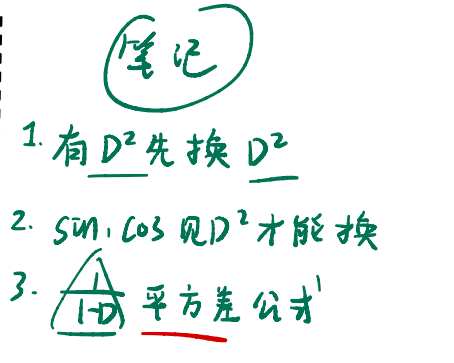 笔记
1. 有D²先换D²
2. sin, cos见D²才能换
3. 1/(1-D) 平方差公式